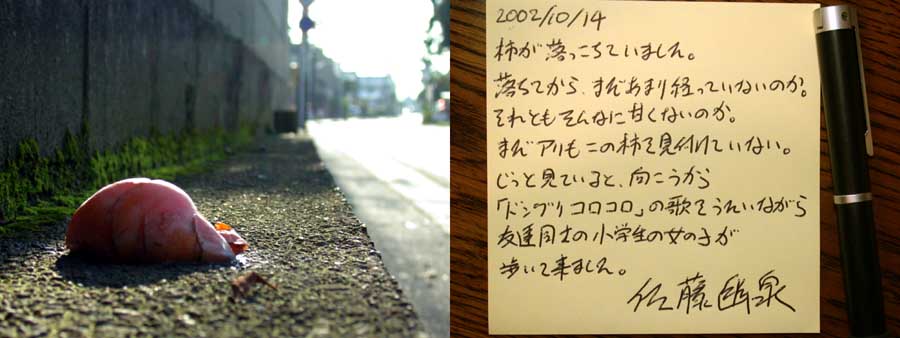 2002/10/14
柿が落っこちていました。
落ちてから、まだあまり経っていないのか。
それともそんなに甘くないのか。
まだアリもこの柿を見付けていない。
じっと見ていると、向こうから
「ドングリコロコロ」の歌をうたいながら
友達同士の小学生の女の子が
歩いて来ました。
佐藤幽泉